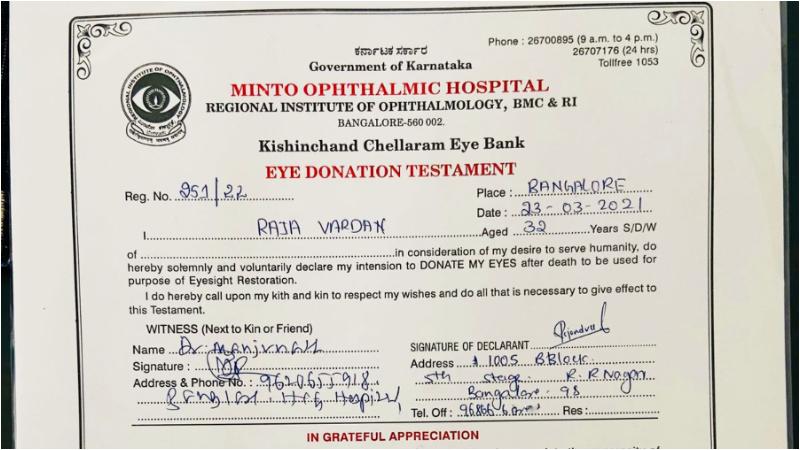 Phone : 26700895 (9 a.m. to 4 p.m.)
26707176 (24 hrs)
Tollfree 1053
ಕರ್ನಾಟಕ ಸರ್ಕಾರ
Government of Karnataka
MINTO OPHTHALMIC HOSPITAL
REGIONAL INSTITUTE OF OPHTHALMOLOGY, BMC & RI
BANGALORE-560 002.
REGIONAL INSTITUTE OF OPHTHALMOLOGY
Kishinchand Chellaram Eye Bank
EYE DONATION TESTAMENT
Reg. No. 251/22
Place : BANGALORE
Date : 23-03-2021
I RAJA VARDAN Aged 32 Years S/D/W
of in consideration of my desire to serve humanity, do
hereby solemnly and voluntarily declare my intension to DONATE MY EYES after death to be used for
purpose of Eyesight Restoration.
I do hereby call upon my kith and kin to respect my wishes and do all that is necessary to give effect to
this Testament.
WITNESS (Next to Kin or Friend)
Name Dr. Manjunath
Signature :
Address & Phone No. : 9620655918
Hospital
SIGNATURE OF DECLARANT
Address # 1005 B Block
5th Stage R. R Nagar
Bangalore 98
Tel. Off : Res :
IN GRATEFUL APPRECIATION